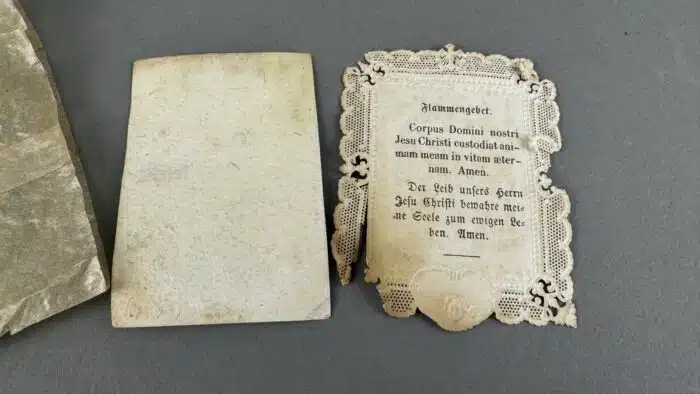 Flammengebet.
Corpus Domini nostri
Jesu Christi custodiat ani-
mam meam in vitam æter-
nam. Amen.
Der Leib unsers Herrn
Jesu Christi bewahre mei-
ne Seele zum ewigen Le-
ben. Amen.